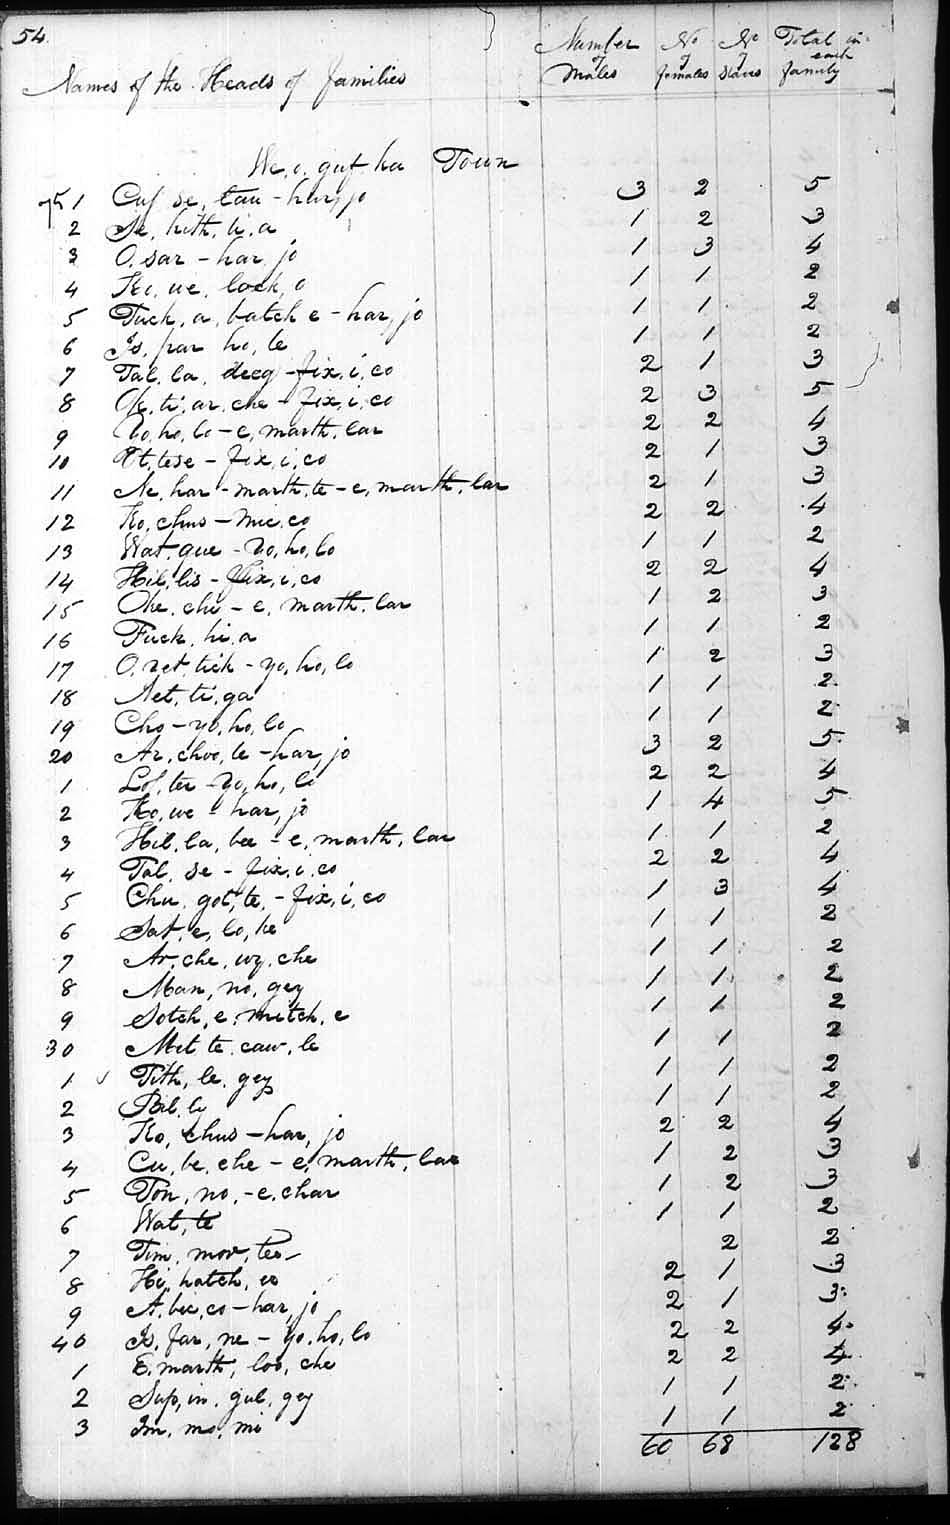 54
Number No No Total in
of of of each
Names of the Heads of Families Males females Slaves family
We,o,guf,ka Town
1 Cuf,se,tau-har,jo 3 2 5
2 Se,hith,li,a 1 2 3
3 O,sar-har,jo 1 3 4
4 Ko,we,lock,o 1 1 2
5 Tuck,a,batch e-har,jo 1 1 2
6 Is,par ho,le 1 1 2
7 Tal,la,deeg-fix,i,co 2 1 3
8 Ok,ti,ar,che-fix,i,co 2 3 5
9 Yo,ho,lo-e,marth,lar 2 2 4
10 Ot,tese-fix,i,co 2 1 3
11 Ne,har-marth,te-e,marth,lar 2 1 3
12 Ko,chus-mic,co 2 2 4
13 Wat,que-yo,ho,lo 1 1 2
14 Hil,lis-fix,i,co 2 2 4
15 Oke,chi-e,marth,lar 1 2 3
16 Fuck,hi,a 1 1 2
17 tick-yo,ho,lo 1 2 3
18 Net,ti,ga 1 1 2
19 Cho-yo,ho,lo 1 1 2
20 Ar,choo,le-har,jo 3 2 5
1 Lof,ter-yo,ho,lo 2 2 4
2 Ko,we-har,jo 1 4 5
3 Hil,la,bee-e,marth,lar 1 1 2
4 Tal,se-fix,i,co 2 2 4
5 Chu,got,te,-fix,i,co 1 3 4
6 Sat,e,lo,ke 1 1 2
7 Ar,che,wy,che 1 1 2
8 Man,no,gey 1 1 2
9 Sotch,e,mitch,e 1 1 2
30 Met te,caw,le 1 1 2
1 Tith,le,gey 1 1 2
2 Bil,ly 1 1 2
3 Ko,chus-har,jo 2 2 4
4 Cu,be,che-e,marth,lar 1 2 3
5 Ton,no,-e,char 1 2 3
6 Wat,te 1 1 2
7 Tim,mov 2 2
8 Hi,hatch,co 2 1 3
9 A,bic,co-har,jo 2 1 3
40 Is,far,ne-yo,ho,lo 2 2 4
1 E,marth,loo,che 2 2 4
2 Sup,in,gul,gey 1 1 2
3 Im,mo,mi 1 1 2
60 68 128